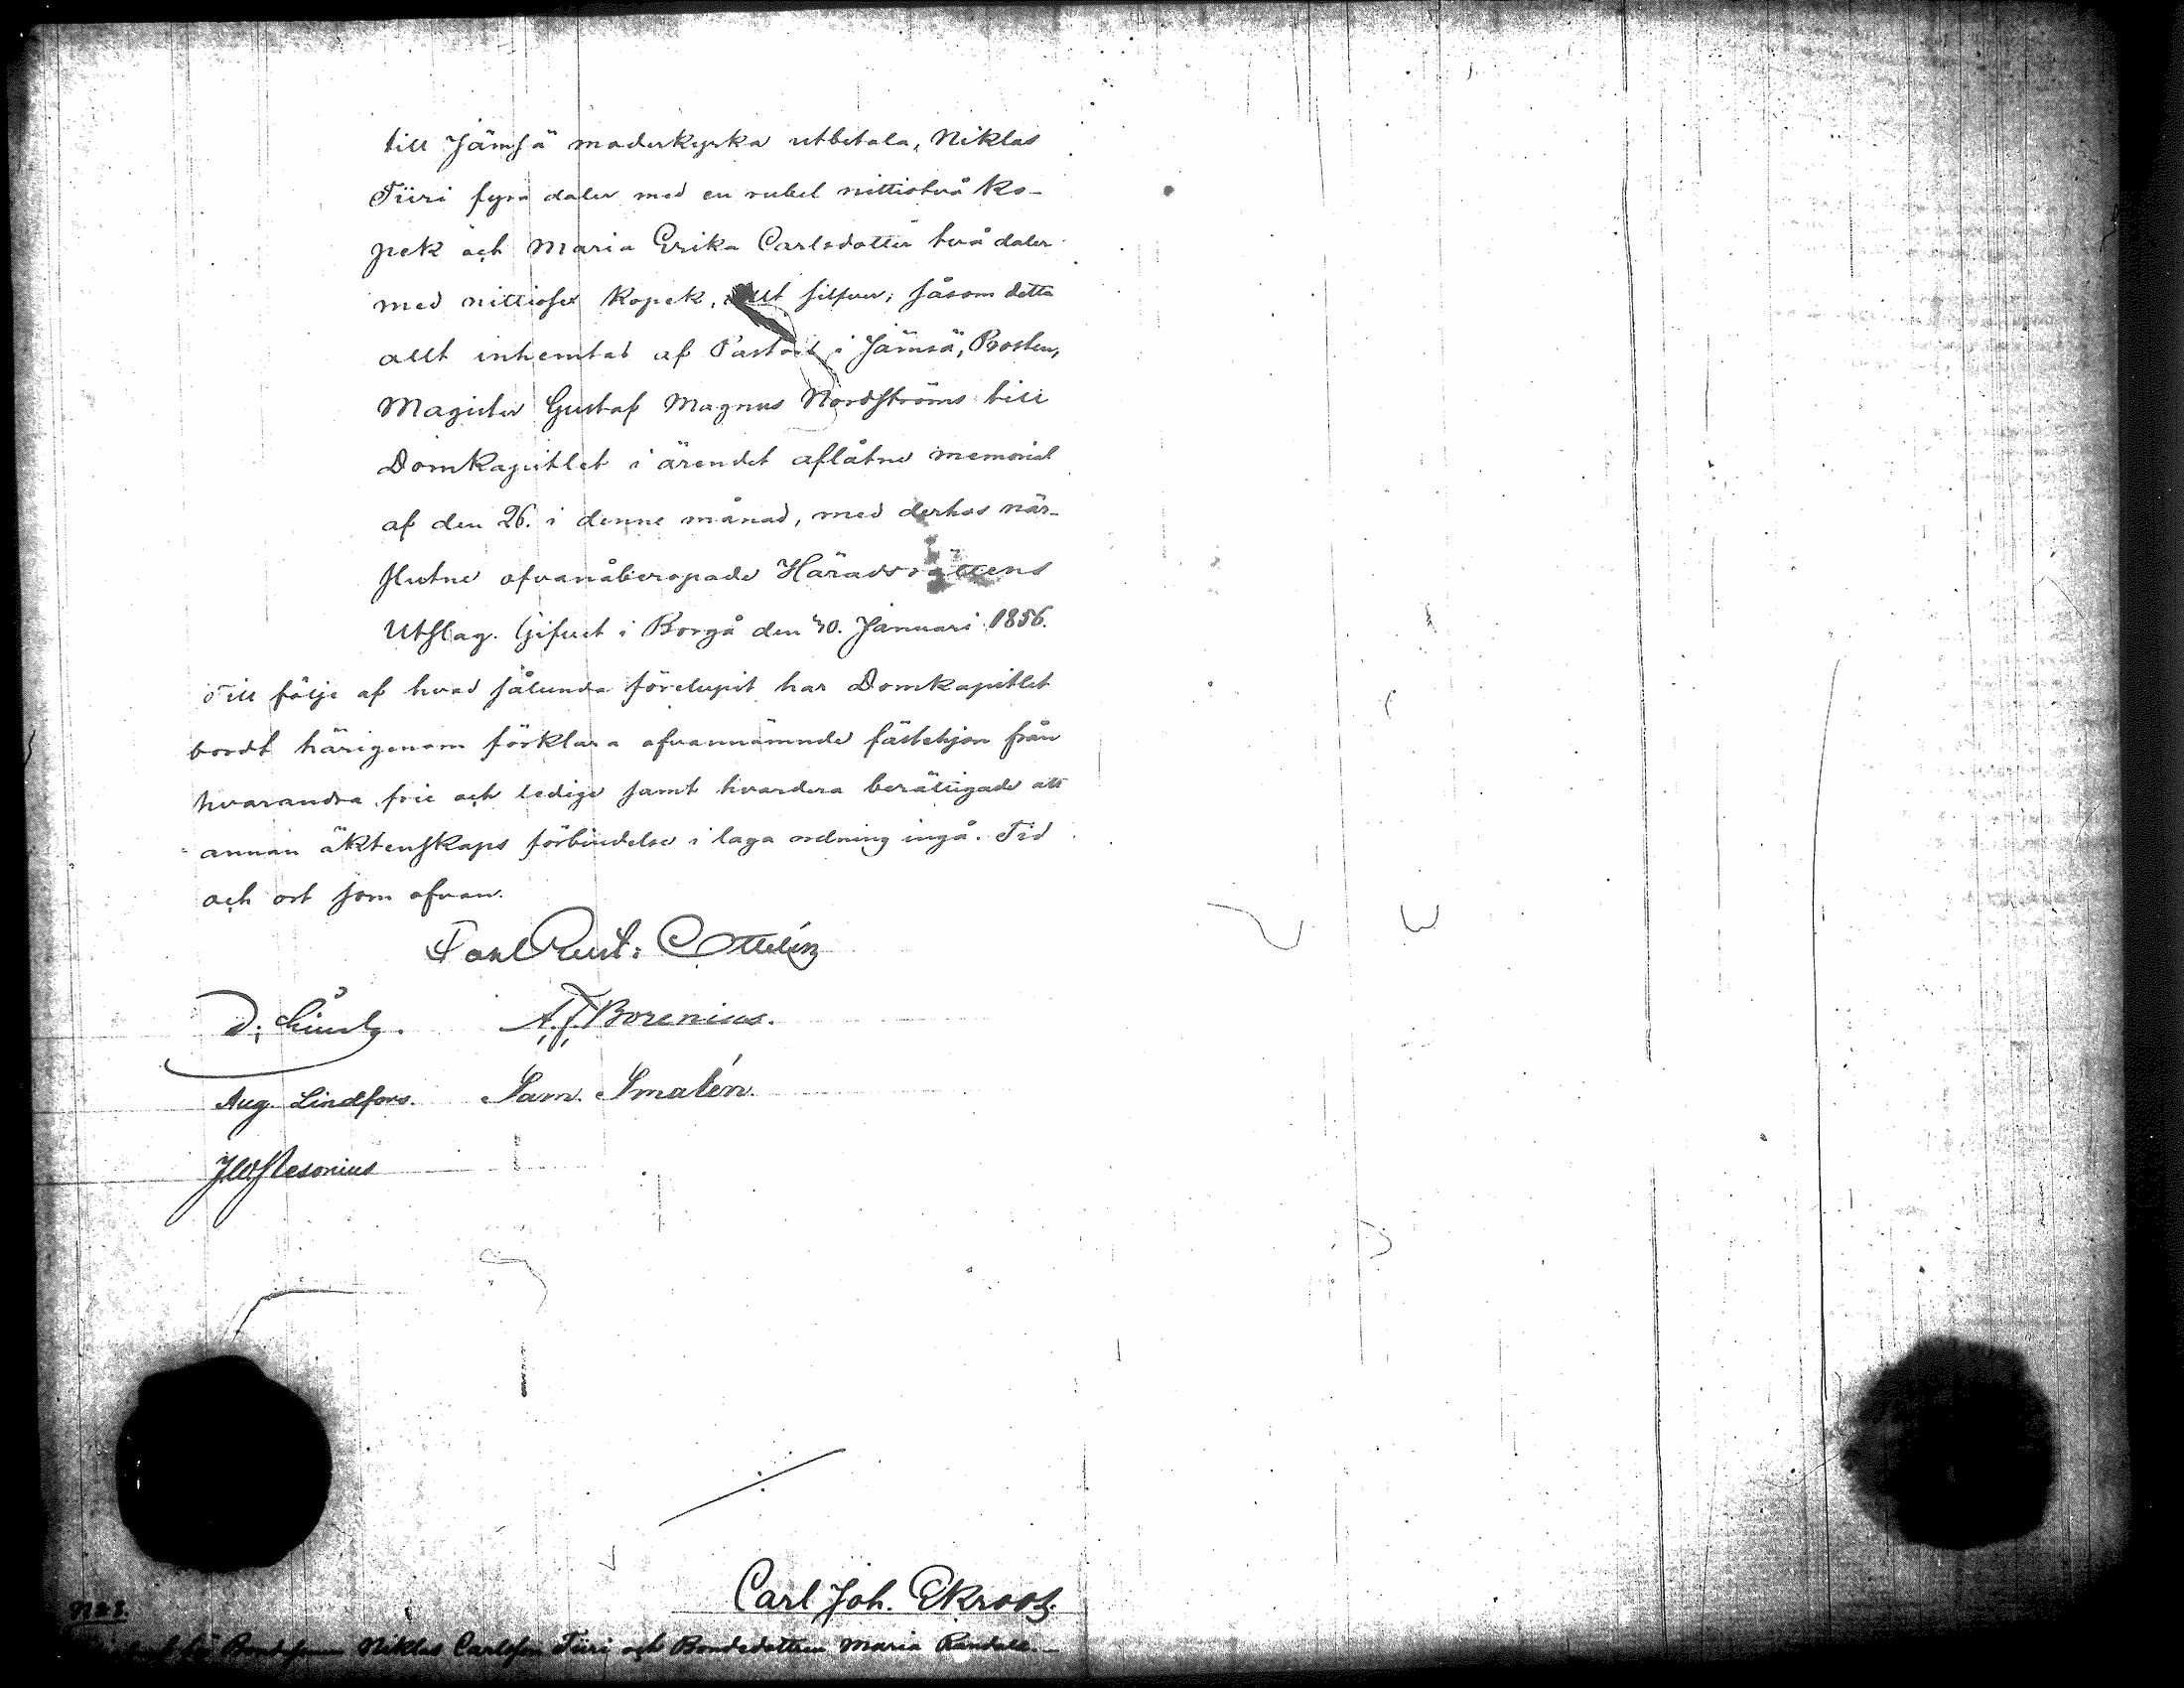 till Jämsä moderkyrka utbetala, Niklas
Tiiri fyra daler med en rubel nittiotvå ko-
pek och Maria Erika Carlsdotter två daler
med nittiosex kopek, allt silfver; såsom detta
allt inhemtat af Pastors i Jämsä, Prosten,
Magister Gustaf Magnus Nordströms till
Domkapitlet i ärendet aflåtne memorial
af den 26. i denne månad, med derhos när-
slutne ofvanåberopade Häradsrättens
Utslag. Gifvet i Borgå den 30. Januari 1856.
Till följe af hvad sålunda förelupit har Domkapitlet
bordt härigenom förklara ofvannämnde fästehjon från
hvarandra frie och ledige samt hvardera berättigade att
annan äktenskaps förbindelse i laga ordning ingå. Tid
och ort som ofvan.
Carl Gust: Ottelin
A. J. Borenius.
Aug. Lindfors. Sam.
Carl Joh. Ekroos.
No 2.
Bondesonen Niklas Carlsson Tiiri och Bondedottren Maria